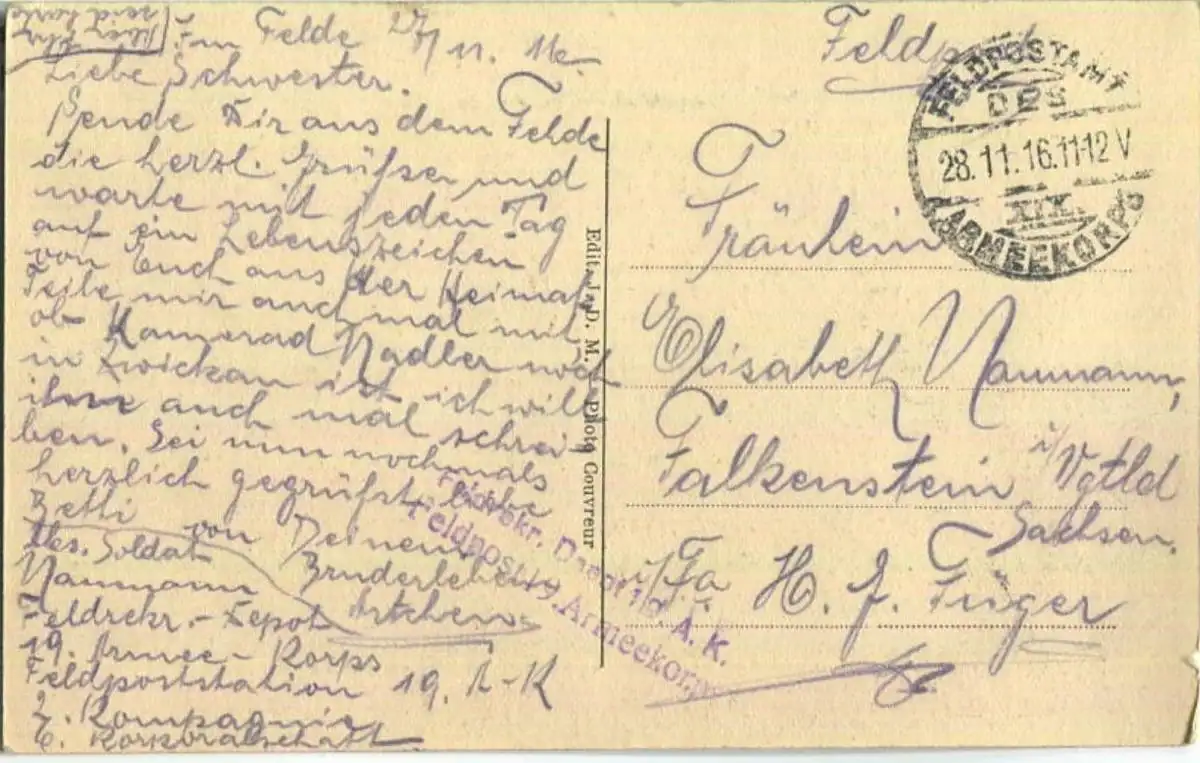 Im Felde 27/11. 16.
Liebe Schwester.
Sende Dir aus dem Felde
die herzl. Grüße und
warte mit jeden Tag
auf ein Lebenszeichen
von Euch aus der Heimat
Teile mir auch mal mit
ob Kamerad Nadler noch
in Zwickau ist ich will
ihm auch mal schrei-
ben. Sei nun nochmals
herzlich gegrüßt liebe
Betti von Deinem
Bruderleben
Abs. Soldat
Naumann
Feldrekr.-Depot
19. Armee-Korps
Feldpoststation 19. A-K
2. Kompagnie
6. Korporalschaft
Edit. J. D. M. Photo Gouvreur
Feldrekr. Depot 19. A. K.
Feldpost 19. Armeekorps
Feldpost
FELDPOSTAMT
DES
28.11.16.11-12 V
XIX.
ARMEEKORPS
Fräulein
Elisabeth Naumann,
Falkenstein i/Vgtld
Sachsen.
i/Fa H. J. Füger